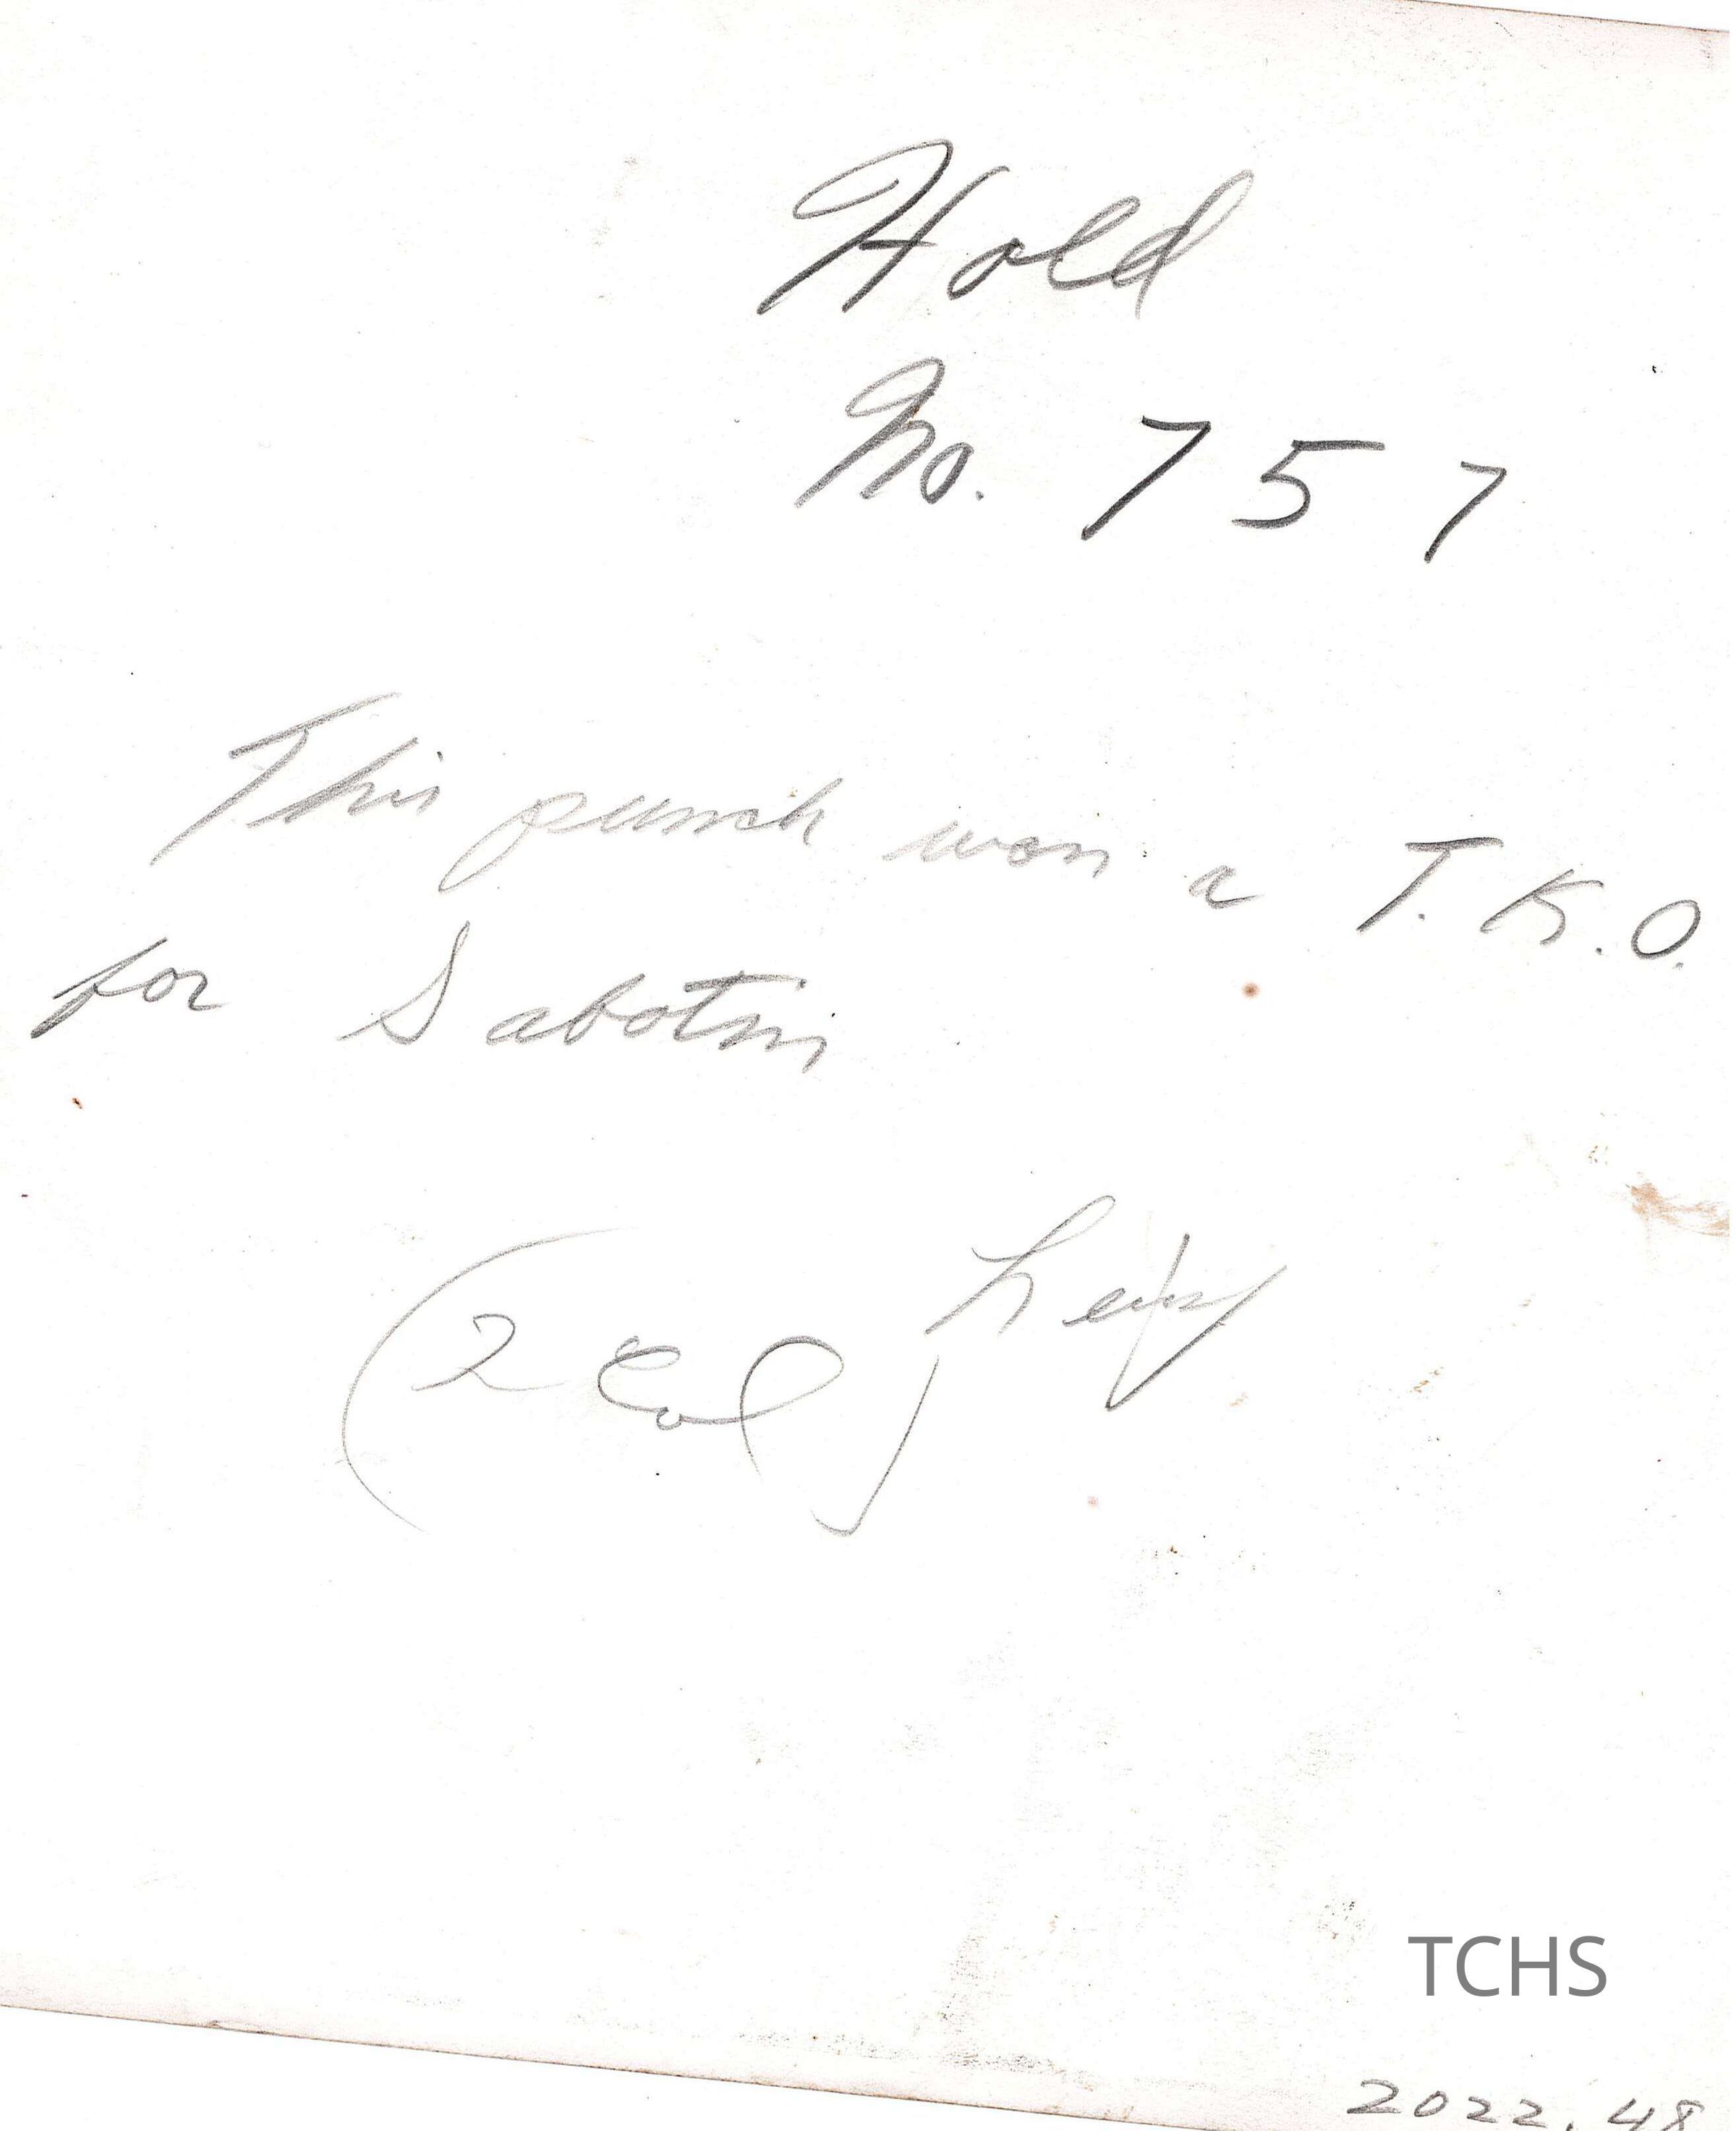 Hold
No. 757
This punch won a T.K.O.
for Sabotin
(2 Col)
TCHS
2022.48